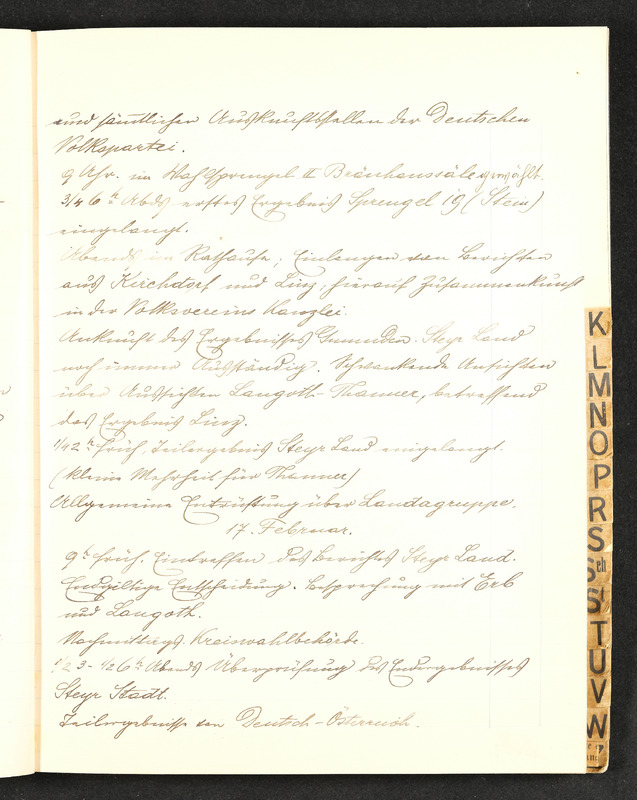 und sämtlichen Auskunftsstellen der Deutschen
Volkspartei.
9 Uhr. im Wahlsprengel II Bräuhaussäle gewählt.
3/4 6 h Abds erstes Ergebnis Sprengel 19 (Stein)
eingelangt.
Abends im Rathause; Einlangen von Berichten
aus Kirchdorf und Linz, hierauf Zusammenkunft
in der Volksvereins Kanzlei.
Ankunft des Ergebnisses Gmunden. Steyr Land
noch immer Ausständig. Schwankende Ansichten
über Aussichten Langoth-Thanner, betreffend
das Ergebnis Linz.
1/4 2 h früh, Teilergebnis Steyr Land eingelangt.
(kleine Mehrheit für Thanner)
Allgemeine Entrüstung über Landagruppe.
17. Februar.
9 h früh. Eintreffen des Berichtes Steyr Land.
Endgiltige Entscheidung. Besprechung mit Erb
und Langoth.
Nachmittags Kreiswahlbehörde.
1/2 3 - 1/2 6 h Abends Überprüfung des Endergebnisses
Steyr Stadt.
Teilergebnisse von Deutsch-Österreich.
K
L
M
N
O
P
R
S
Sch
St
T
U
V
W